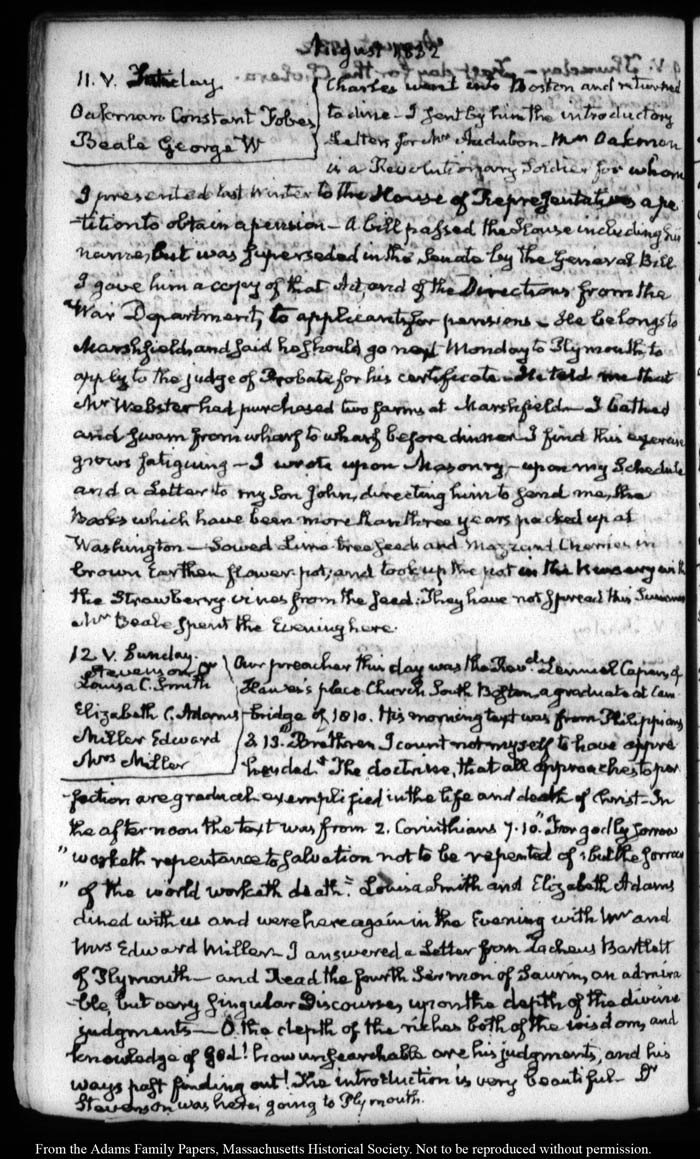 August 1832
11. V. Saturday.
Oakman Constant Fobes
Beale George W
Charles went into Boston and returned
to dine – I sent by him the introductory
Letters for Mr Audubon – Mr Oakman
is a Revolutionary Soldier for whom
I presented last Winter to the House of Representatives a pe-
-tition to obtain a pension – A bill passed the House including his
name, but was superseded in the Senate by the General Bill
I gave him a copy of that Act, and of the Directions from the
War Department, to applicants for pensions – He belongs to
Marshfield, and said he should go next Monday to Plymouth, to
apply to the judge of Probate for his certificate – He told me that
Mr Webster had purchased two farms at Marshfield – I bathed
and swam from wharf to wharf before dinner – I find this exercise
grows fatiguing – I wrote upon Masonry – upon my Schedule
and a Letter to my Son John, directing him to send me, the
Books which have been more than three years packed up at
Washington – Sowed Lime tree seeds and Mazzard Cherries in
brown Earthen flower-pot, and took up the pot in the Nursery with
the Strawberry vines from the seed. They have not spread this Summer
Mr Beale spent the Evening here.
12 V. Sunday.
Stevenson Dr
Louisa C. Smith
Elizabeth C. Adams
Miller Edward
Mrs Miller
Our preacher this day was the Revd Lemuel Capen, of
Hawes's place Church South Boston, a graduate at Cam
-bridge of 1810. His morning text was from Philippians
3. 13. "Brethren, I count not myself to have appre
hended." The doctrine, that all approaches to per
fection are gradual, exemplified in the life and death of Christ – In
the afternoon the text was from 2. Corinthians 7. 10. "For godly sorrow
" worketh repentance to salvation not to be repented of: but the sorrow
" of the world worketh death." Louisa Smith and Elizabeth Adams
dined with us and were here again in the Evening with Mr and
Mrs Edward Miller – I answered a Letter from Zacheus Bartlett
of Plymouth – and Read the fourth Sermon of Saurin, an admira
-ble, but very singular Discourse, upon the depth of the divine
judgments – O the depth of the riches both of the wisdom, and
knowledge of God! how unsearchable are his judgments, and his
ways past finding out! The introduction is very beautiful – Dr
Stevenson was here, going to Plymouth.
From the Adams Family Papers, Massachusetts Historical Society. Not to be reproduced without permission.